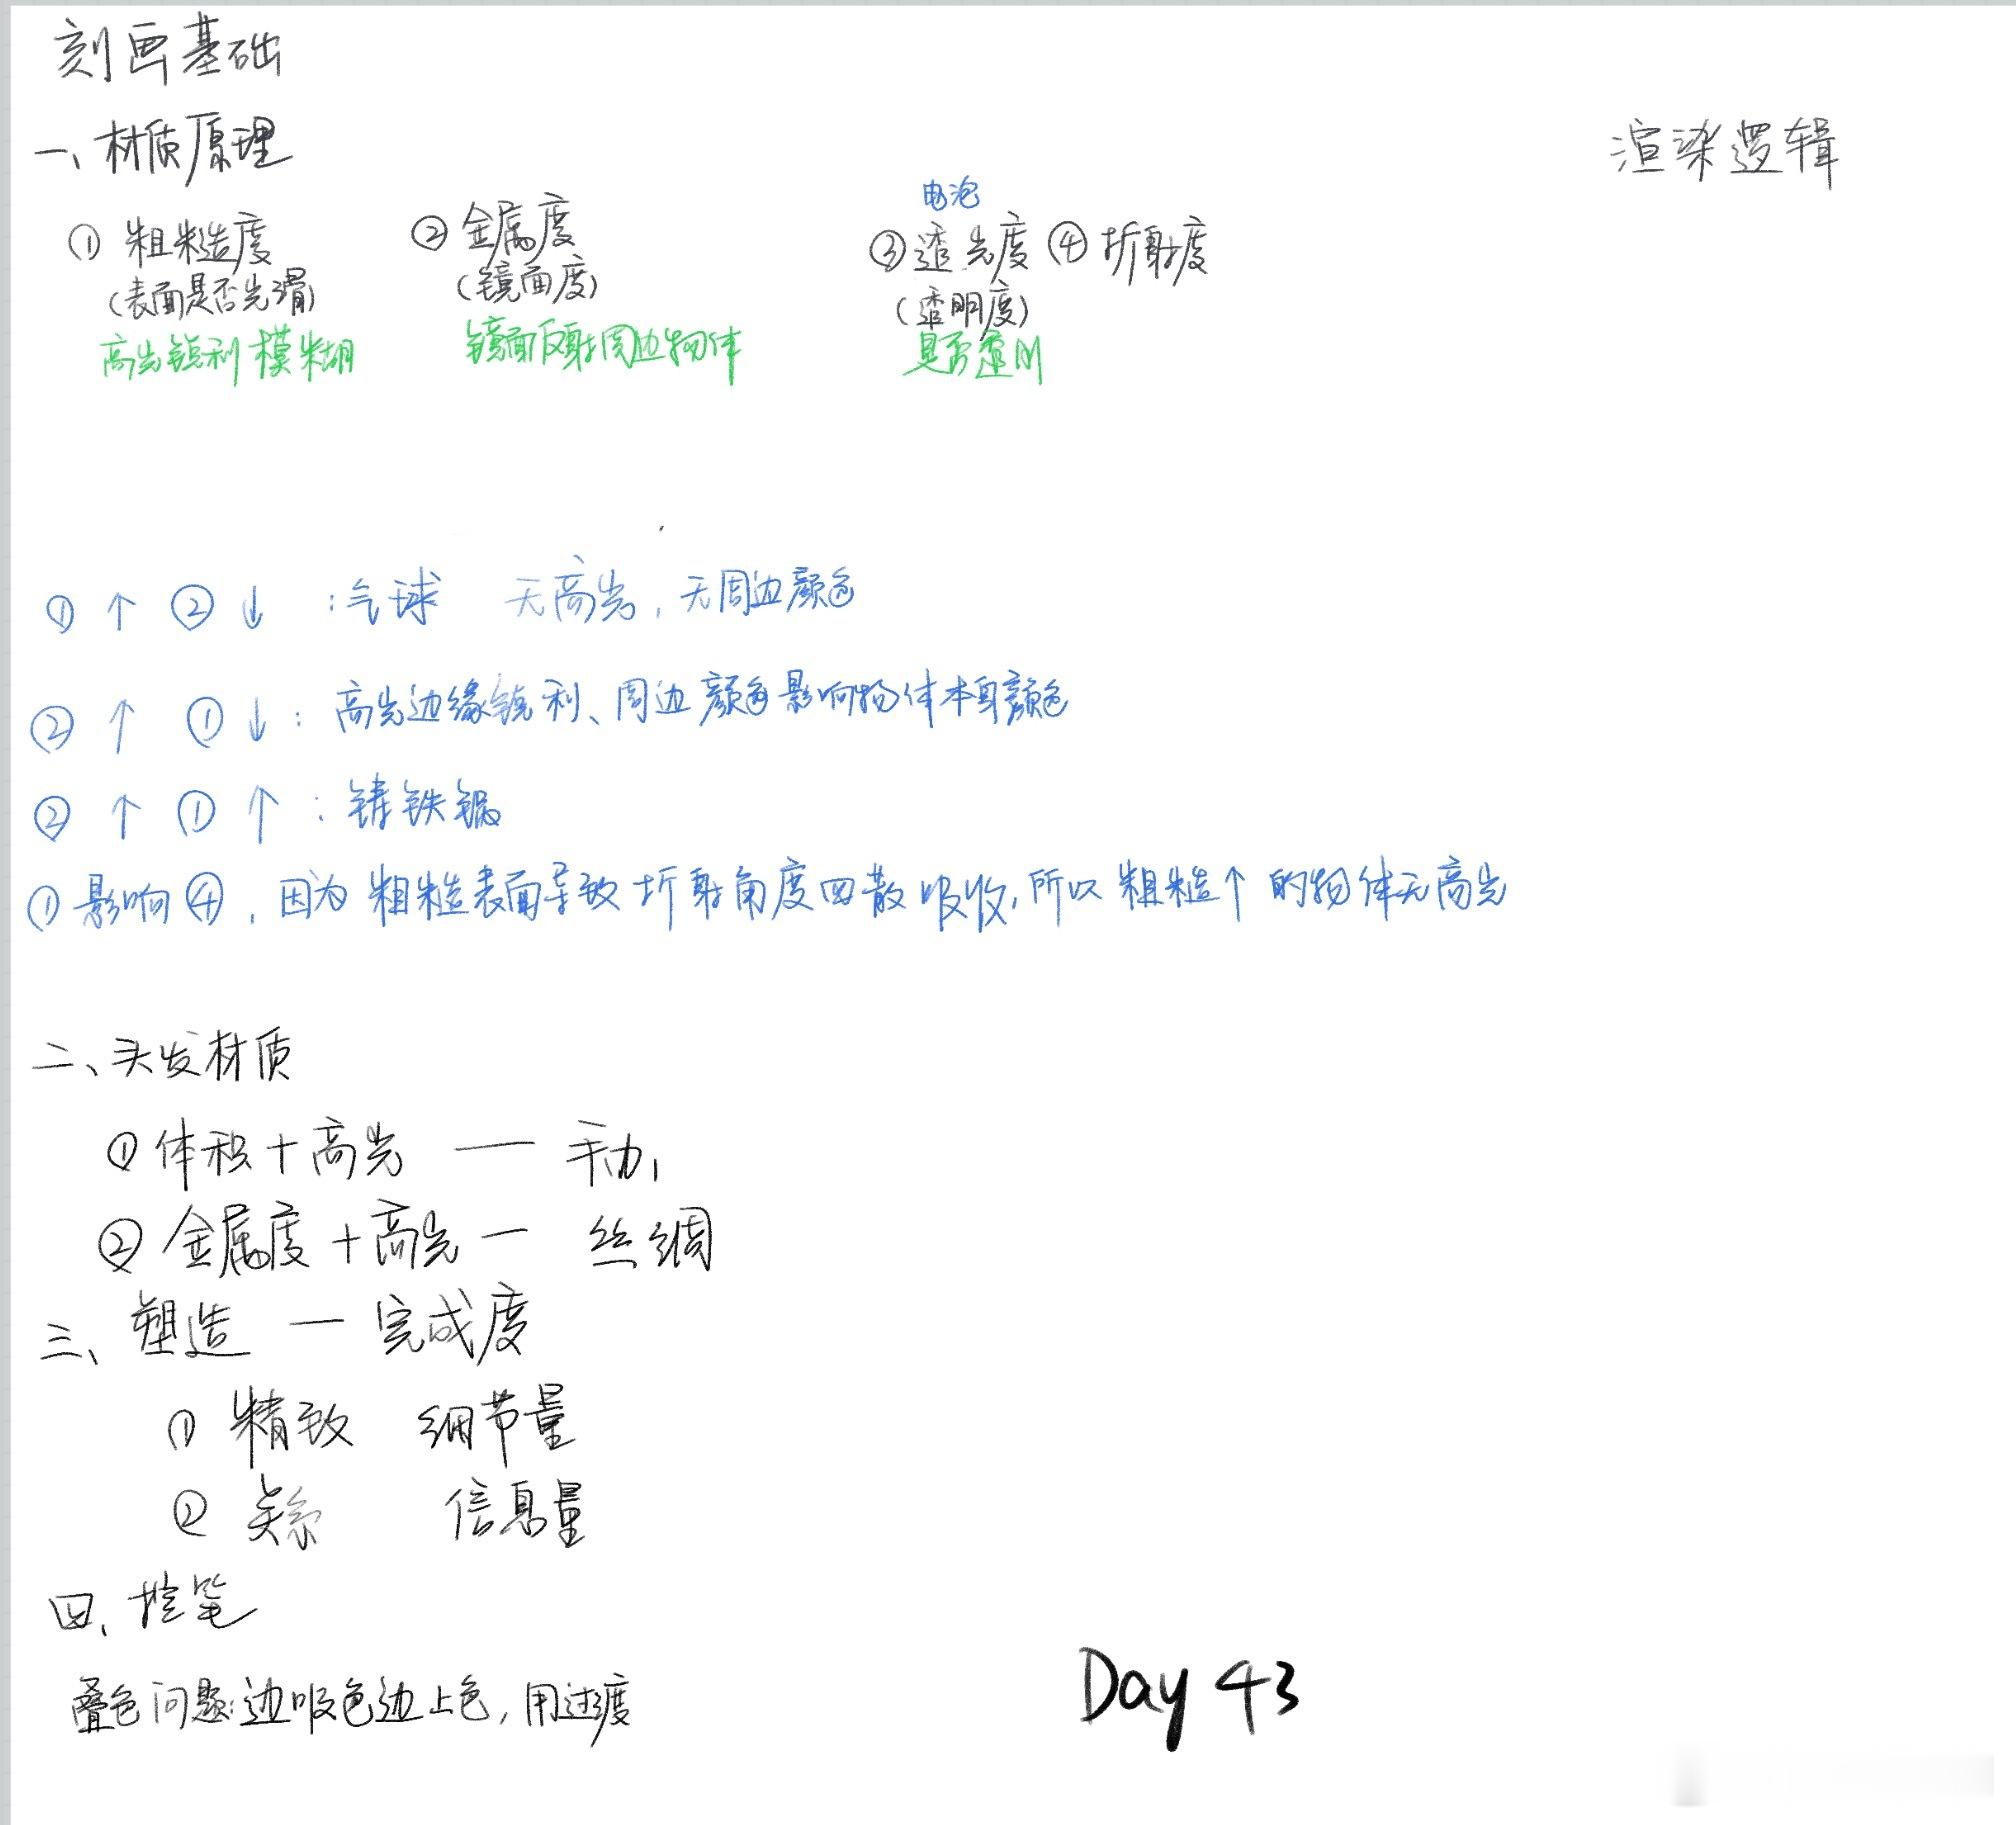 刻画基础
一、材质原理
渲染逻辑
电泡
① 粗糙度 ② 金属度 ③透光度 ④ 折射度
(表面是否光滑) (镜面度) (透明度)
高光锐利 模糊 镜面反射周边物体 是否透明
① ↑ ② ↓ :气球 无高光,无周边颜色
② ↑ ① ↓: 高光边缘锐利、周边颜色影响物体本身颜色
② ↑ ① ↑ : 铸铁锅
①影响④,因为粗糙表面导致折射角度四散吸收,所以粗糙↑的物体无高光
二、头发材质
① 体积+高光 — 手办
② 金属度+高光 — 丝绸
三、塑造 — 完成度
① 精致 细节量
② 关系 信息量
四、控笔
叠色问题:边吸色边上色,用过渡
Day 43